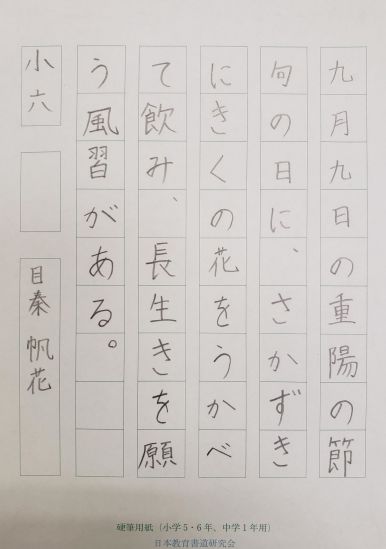 九月九日の重陽の節
句の日に、さかずき
にきくの花をうかべ
て飲み、長生きを願
う風習がある。
小六
目秦 帆花
硬筆用紙（小学5・6年、中学1年用）
日本教育書道研究会